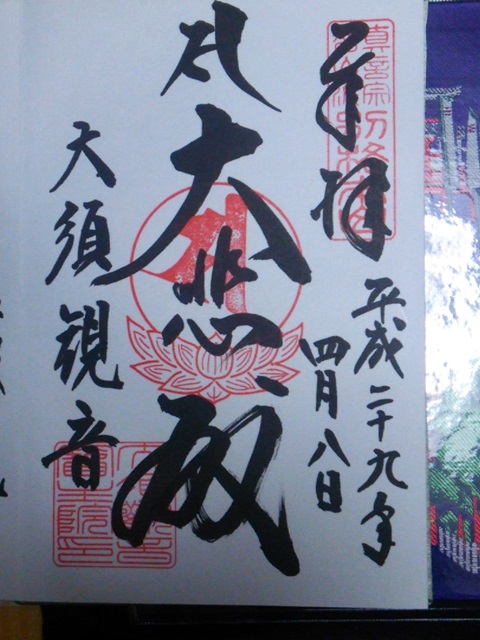 奉拝
平成二十九年
四月八日
大悲殿
大須観音
真言宗